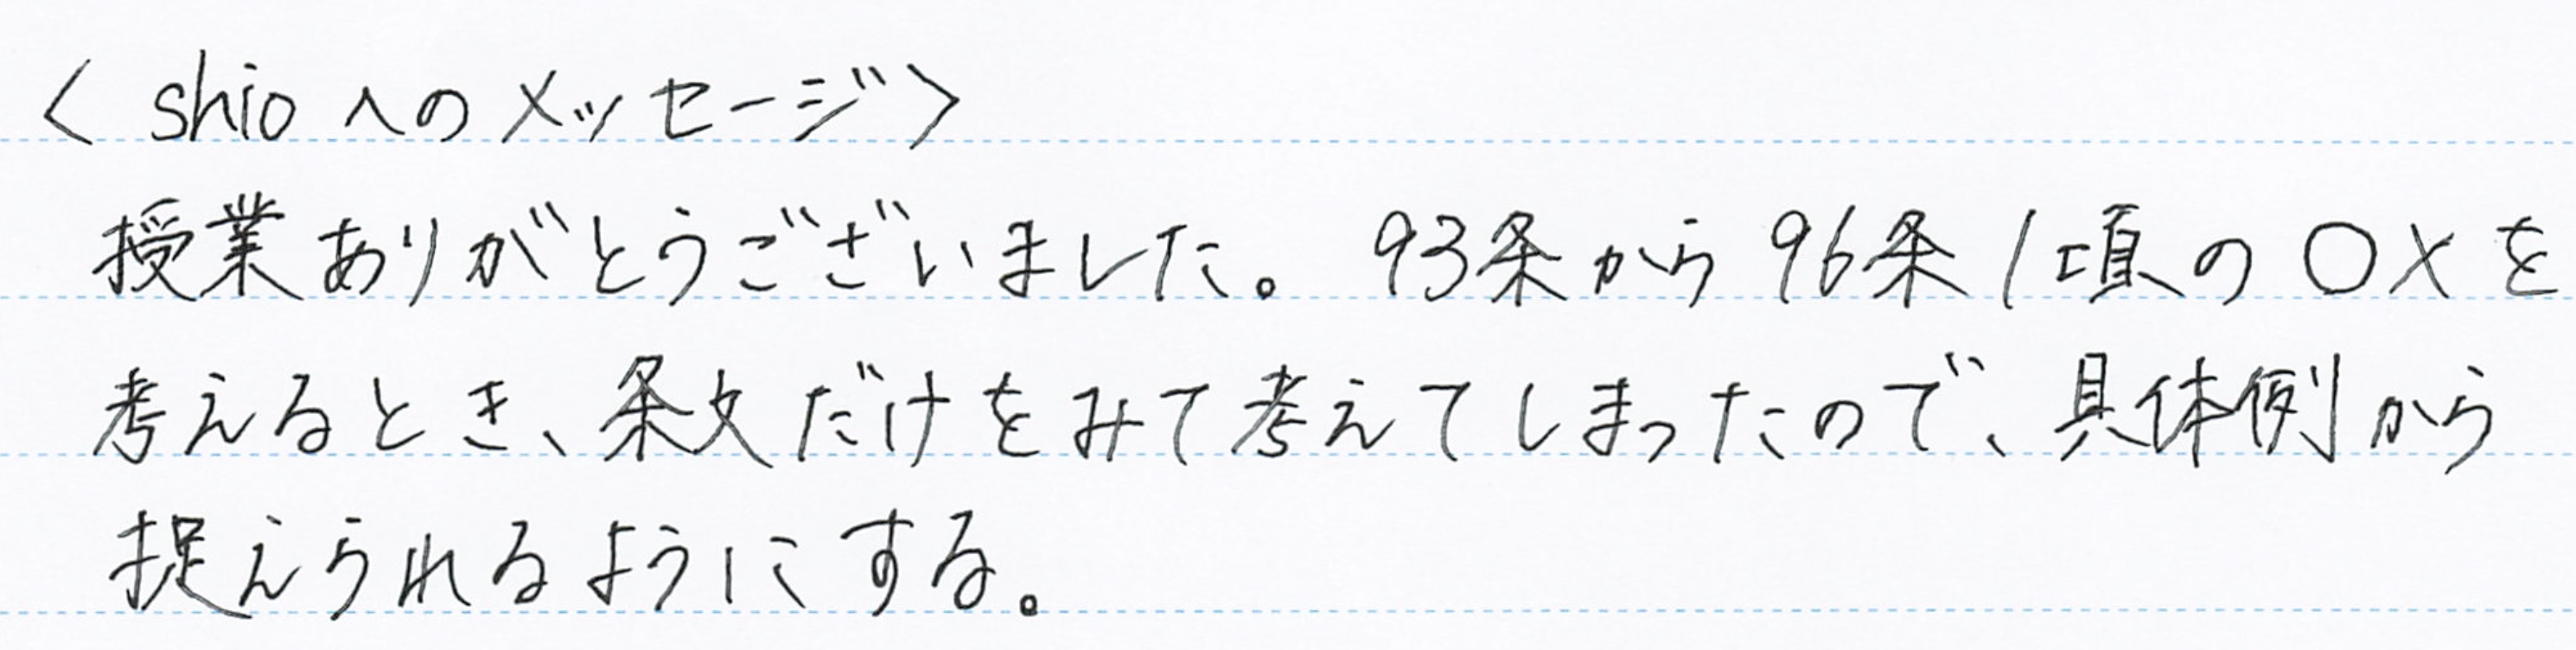 〈 shioへのメッセージ〉
授業ありがとうございました。93条から96条1項の○×を
考えるとき、条文だけをみて考えてしまったので、具体例から
捉えられるようにする。